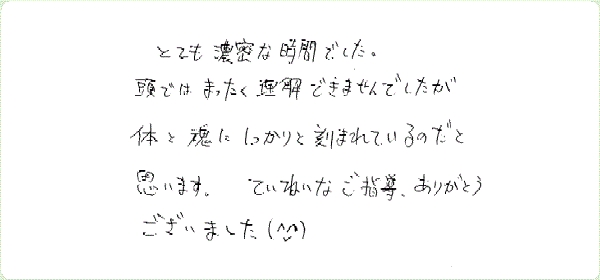 とても濃密な時間でした。
頭ではまったく理解できませんでしたが
体と魂にしっかりと刻まれているのだと
思います。　ていねいなご指導、ありがとう
ございました(^^)